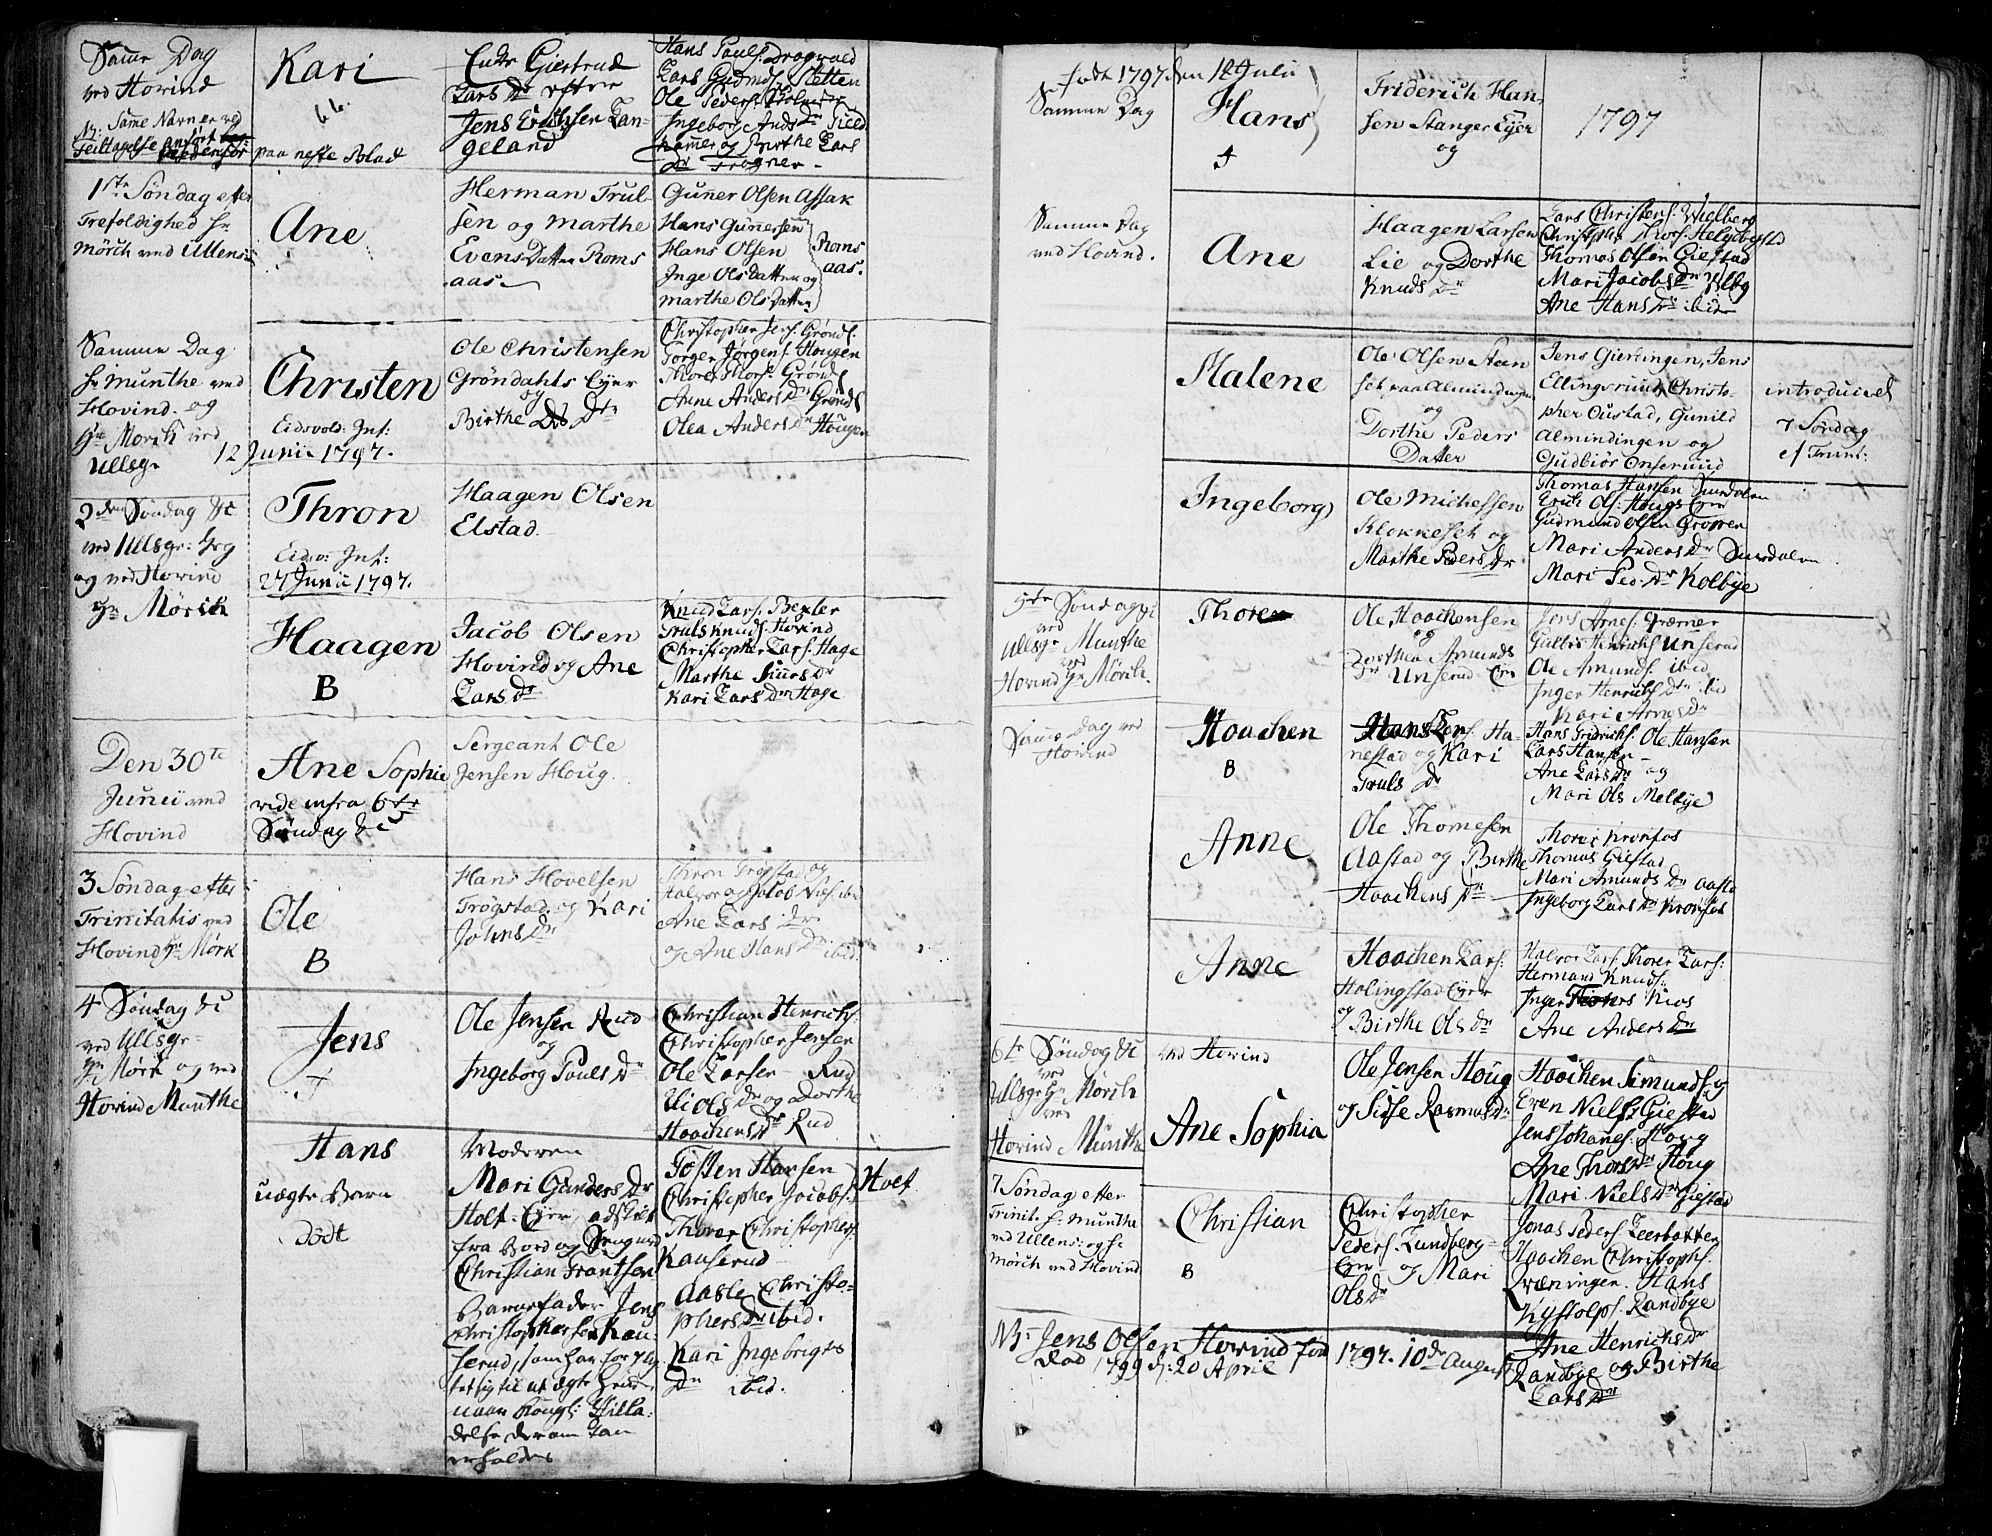 Samme Dag
ved Hovind
NB: Same Navn er ved
Feiltagelse anført
Kari
66.
paa neste Blad
Enke Giertrud
Lars Dr efter
Jens Erichsen Lan-
geland
Hans Pauls. Dragvold
Lars Gudmds. Sletten
Ole Peders.
Ingeborg Ands Dr
og Birthe Lars
Dr Frogner
1ste Søndag efter
Trefoldighed Hr
Mörch ved Ullens
Ane
Herman Trul-
sen og Marthe
Evens Datter Roms
aas
Guner Olsen Assak
Hans Gunersen
Hans Olsen
Inge Ols Datter og
Marthe Ols Datter
Roms
aas.
Samme Dag
Hr Munthe ved
Hovind. og
Hr Mörik ved
Ullsgr
12 Junii 1797.
Christen
Eidsvold: Inf:
Ole Christensen
Gröndahls Eyer
og
Birthe Ols Dtr
Christopher Jers. Grönds.
Torger Jørgens. Hougen
Thorer Thors. Grönd
Anne Anders Dr Grönds
Olea Anders Dr Hougen
2den Søndag &c
ved Ullsgr:
og ved Hovind
Hr Mørik
Thron
Eidsv: Inf:
27 Junii 1797.
Haagen Olsen
Elstad
Haagen
B
Jacob Olsen
Hovind og Ane
Lars Dr
Knud Lars. Bexler
Truls Knuds. Hovind
Christopher Lars. Hage
Marthe Siurs Dr
Kari Lars Dr Hage
Den 30te
Junii ved
Hovind
Ane Sophie
vide infra 6te
Søndag &c
Sergeant Ole
Jensen Houg.
3 Søndag efter
Trinitatis ved
Hovind Hr Mørk
Ole
B
Hans Hovelsen
Trøgstad og Kari
Johns Dr
Thron Trøgstad og
Halvor og Jacob Niels. ibid
Ane Lars Dr
og Ane Hans Dr ibid.
4 Søndag &c
ved Ullsgr
Hr Mørk og ved
Hovind Munthe
Jens
+
Ole Jensen Rud
og
Ingeborg Pouls Dr
Christian Henrichs.
Christopher Jensen
Ole Larsen Rud
Ols Dr og Dorthe
Haachens Dr Rud
Hans
uægte Barn
dödt
Moderen
Mari Gunders Dr
Holt-Eyer, adskilt
fra Bord og Seng med
Christian Frantsen
Barnefader Jens
Christophersen Kau-
serud, som har for
tet sig til at ægte hende,
naar Kongl: Tilla-
delse derom kan
erholdes
Tosten Hansen
Christopher Jacobs.
Thorer Christophers.
Kauserud
Aasle Christo-
phers Dr ibid.
Kari Ingebrigts
Dr ibid.
Holt
født 1797 den 14 Julii
Samme Dag
Hans
+
Friderich Han-
sen Stanger Eyer
og
1797
Samme Dag
ved Hovind.
Ane
Haagen Larsen
Lie og Dorthe
Knuds Dr
Lars Christens. Wielberg
Christphr Thors. Helgebysth
Thomas Olsen Giestad
Mari Jacobs Dr
Ane Hans Dr ibid
Halene
Ole Olsen Steen
set paa Almindingen
og
Dorthe Peders
Datter
Jens Gierdingen, Jens
Ellingsrud, Christo-
pher Oustad, Gunild
Almindingen og
Gudbiör Onserud
introduceret
7 Søndag
ef Trinit:
Ingeborg
Ole Michelsen
Klokkeset og
Marthe Peders Dr
Thomas Hansen Sundalen
Erich Ols. Hougs Eyer
Gudmund Olsen Gropen
Mari Anders Dr Sundalen
Mari Ped: Dr Kolbye
5te Søndag &c
ved
Ullsgr Munthe
ved
Hovind Hr Mørik.
Thorer
Ole Haachensen
og
Dorthea Amunds
Dr Unserud Eyer
Jens Arnes. Præmer
Gulbr. Henrichs. Unserud
Ole Amunds. ibid
Inger Henrichs Dr ibid
Kari Arnes Dr
Samme Dag ved
Hovind
Haachen
B
Hans Lars. Ha-
nestad og Kari
Truls Dr
Hans Fridrichs. Ole Hansen
Lars Hansen
Ane Lars Dr og
Mari Ols Melbye
Anne
Ole Thomesen
Aastad og Birthe
Haachens Dr
Thorer Kronfos
Thomas Giestad
Mari Amunds Dr Aasta
Ingeborg Lars Dr Kronfos
Anne
Haachen Lars:
Holingstad Eyer
og Birthe Ols Dr
Halvor Lars. Thorer Lars:
Hermand Knuds:
Inger Thorers Kios
Ane Anders Dr
6te Søndag &c
ved
Ullsgr Hr Mørik
ved
Hovind Munthe
ved Hovind
Ane Sophia
Ole Jensen Houg
og Sidse Rasmus Dr
Haachen Simunds. og
Even Niels. Giestad
Jens Johanes. Houg
Ane Thors Dr Houg
Mari Niels Dr Giestad
7 Søndag efter
Trinit. Hr Munthe
ved Ullens: og Hr
Mörch ved Hovind
Christian
B
Christopher
Peders. Lundberg-
Eyer og Mari
Ols Dr
Jonas Peders. Leerbatten
Haachen Christoph.
Hans
Kystolps. Randbye
Ane Henrichs Dr
Randbye og Birthe
Lars Dr
NB: Jens Olsen Hovind fød 1797. 10de August
död 1799 d: 20 April